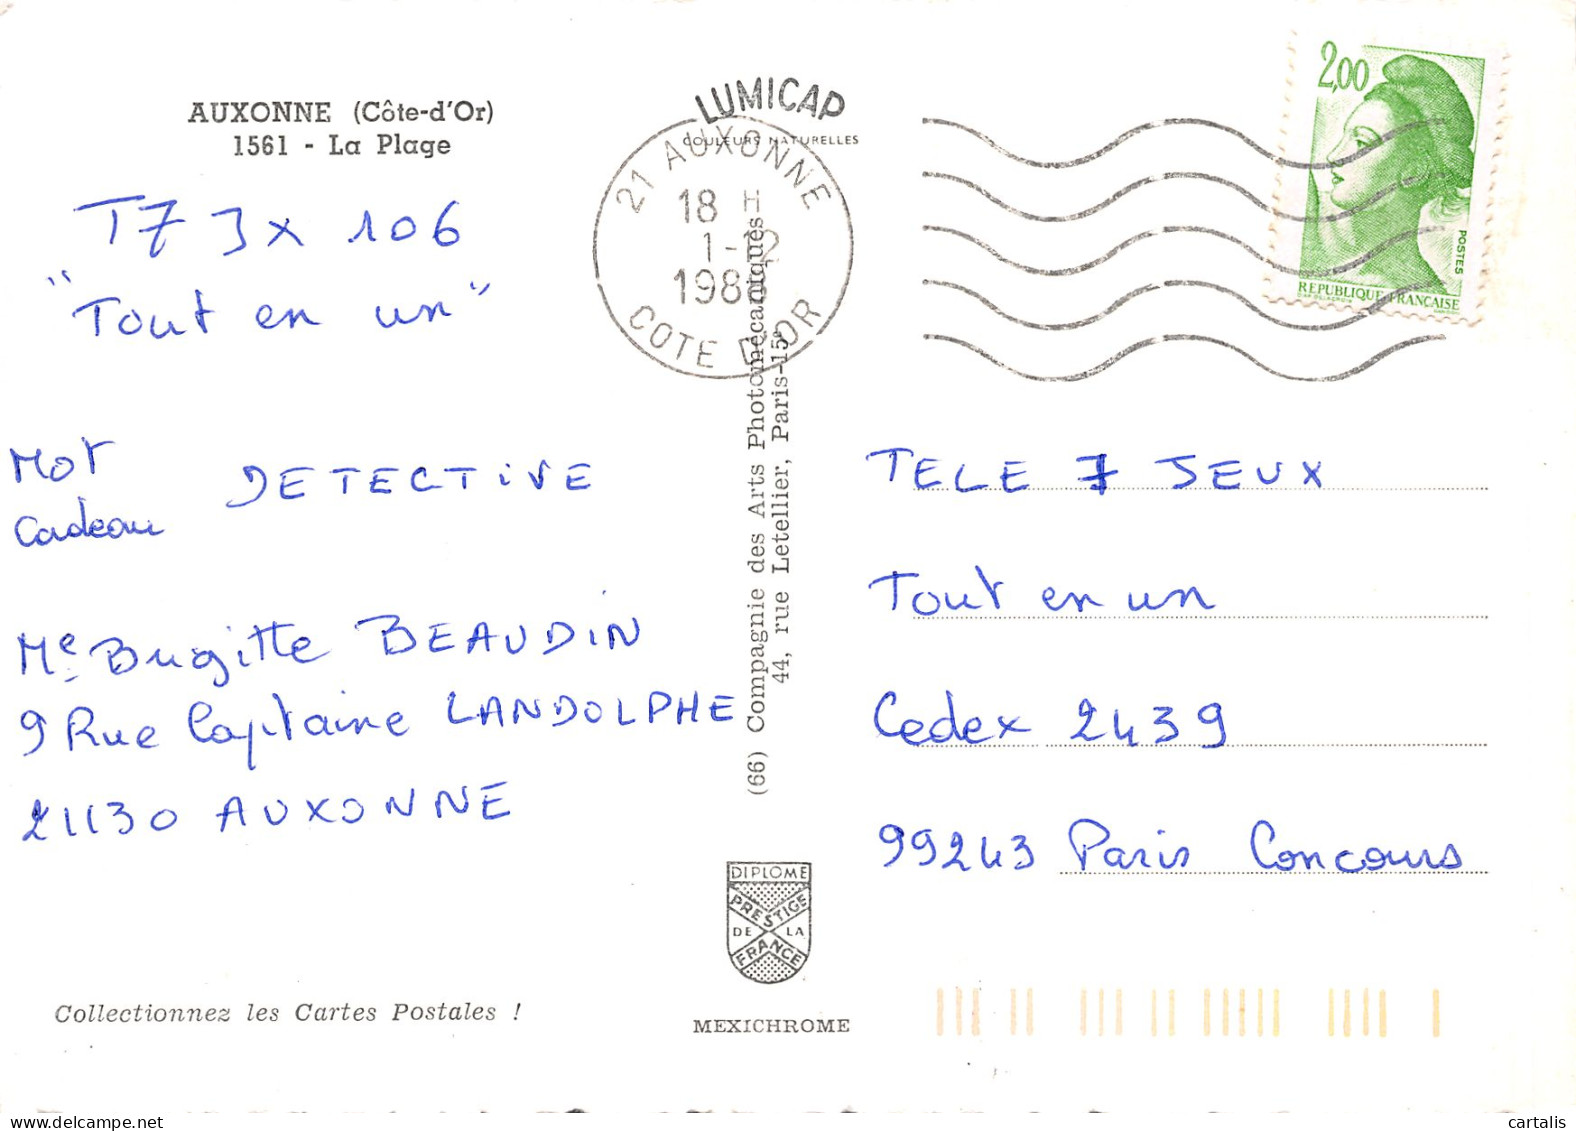 AUXONNE (Côte-d'Or)
1561 - La Plage
T7 Jx 106
"Tout en un"
Mot
Cadeau
DETECTIVE
Me Brigitte BEAUDIN
9 Rue Capitaine LANDOLPHE
21130 AUXONNE
Collectionnez les Cartes Postales !
LUMICAP
COULEURS NATURELLES
21 AUXONNE
18 H
1-12
COTE D'OR
(66) Compagnie des Arts Photomécaniques
44, rue Letellier, Paris-15e
DIPLOME
PRESTIGE
DE LA
FRANCE
MEXICHROME
2,00
POSTES
REPUBLIQUE FRANÇAISE
TELE 7 JEUX
Tout en un
Cedex 2439
99243 Paris Concours
cartalis